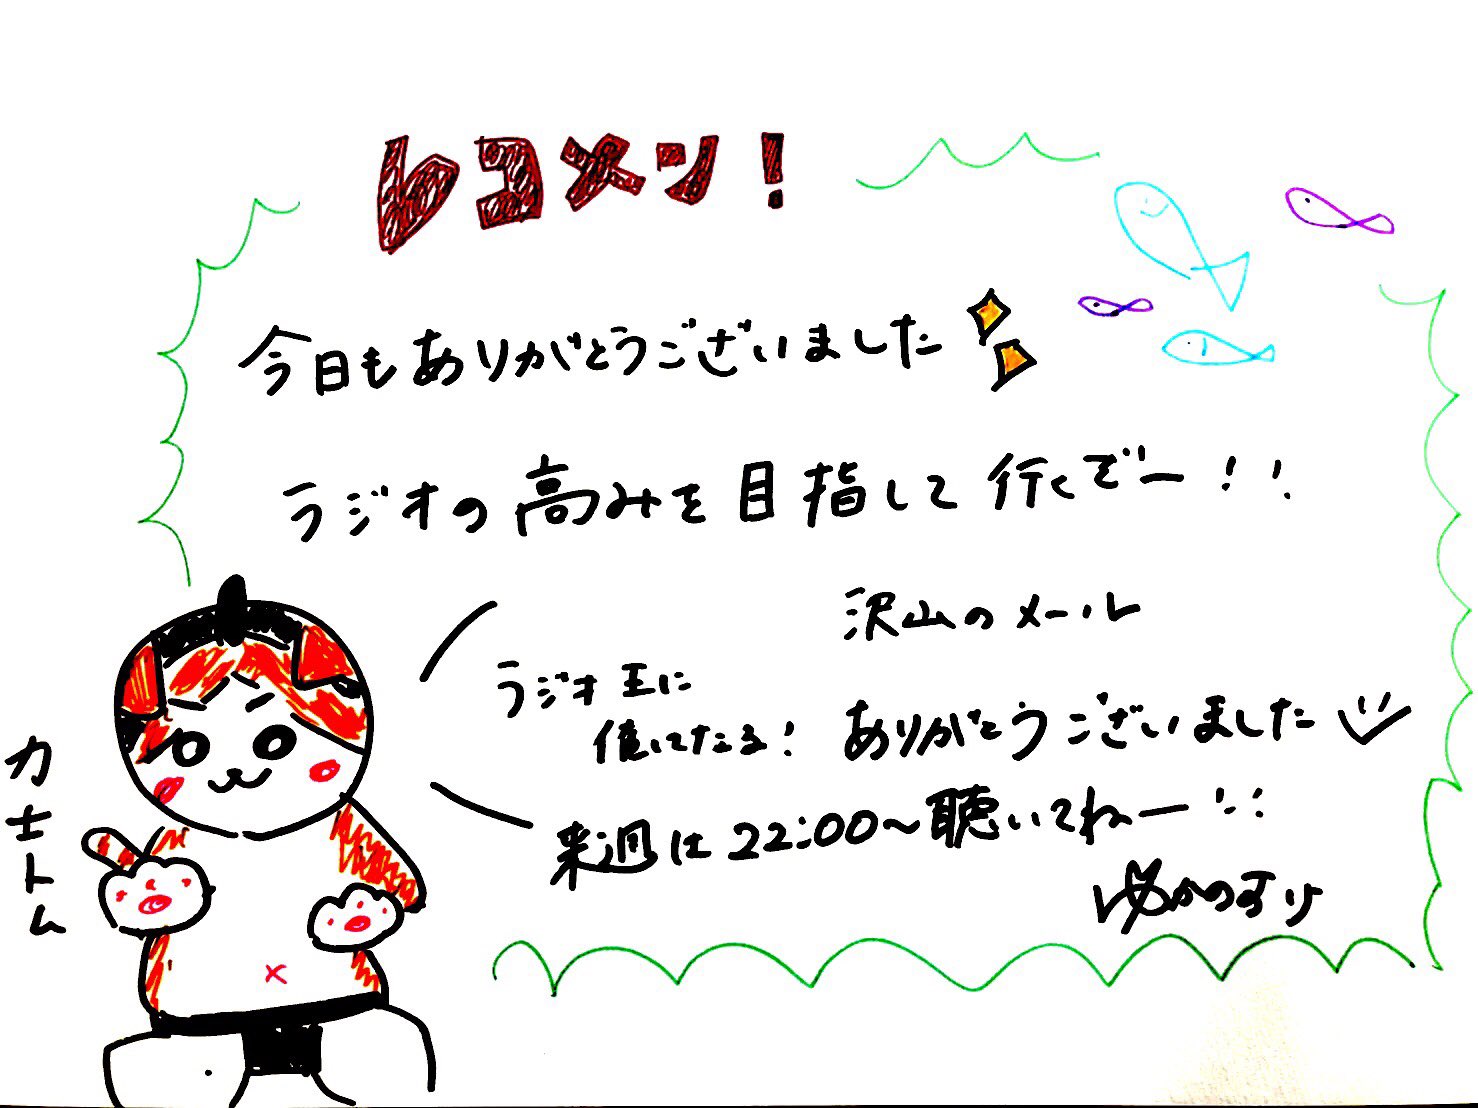 レコメン!
今日もありがとうございました
ラジオの高みを目指して行くぞー!!
沢山のメール
ありがとうございました
ラジオ王に
なる!
来週は22:00~聴いてねー!!
力士トム